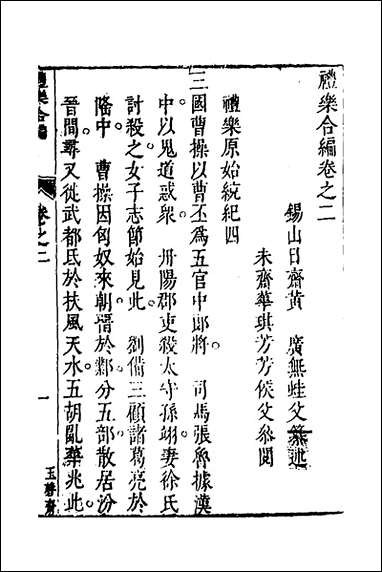 禮樂合編卷之二
錫山日齋黃　廣無蛙父纂述
未齋華琪芳芳侯父叅閱
禮樂原始統紀四
三國曹操以曹丕爲五官中郎將。　司馬張魯據漢
中以鬼道惑衆　丹陽郡吏殺太守孫翊妻徐氏
討殺之女子志節始見此。　劉備三顧諸葛亮於
隆中　曹操因匈奴來朝㽞於鄴分五部散居汾
晉間。尋又徙武都氏於扶風天水。五胡亂華兆此。
禮樂合編
卷之二
一
玉磬齋